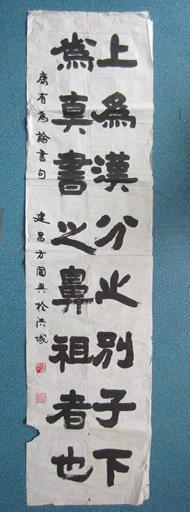 上為漢分之別子下
為真書之鼻祖者也
康有為論書句 建昌方國興於洪城